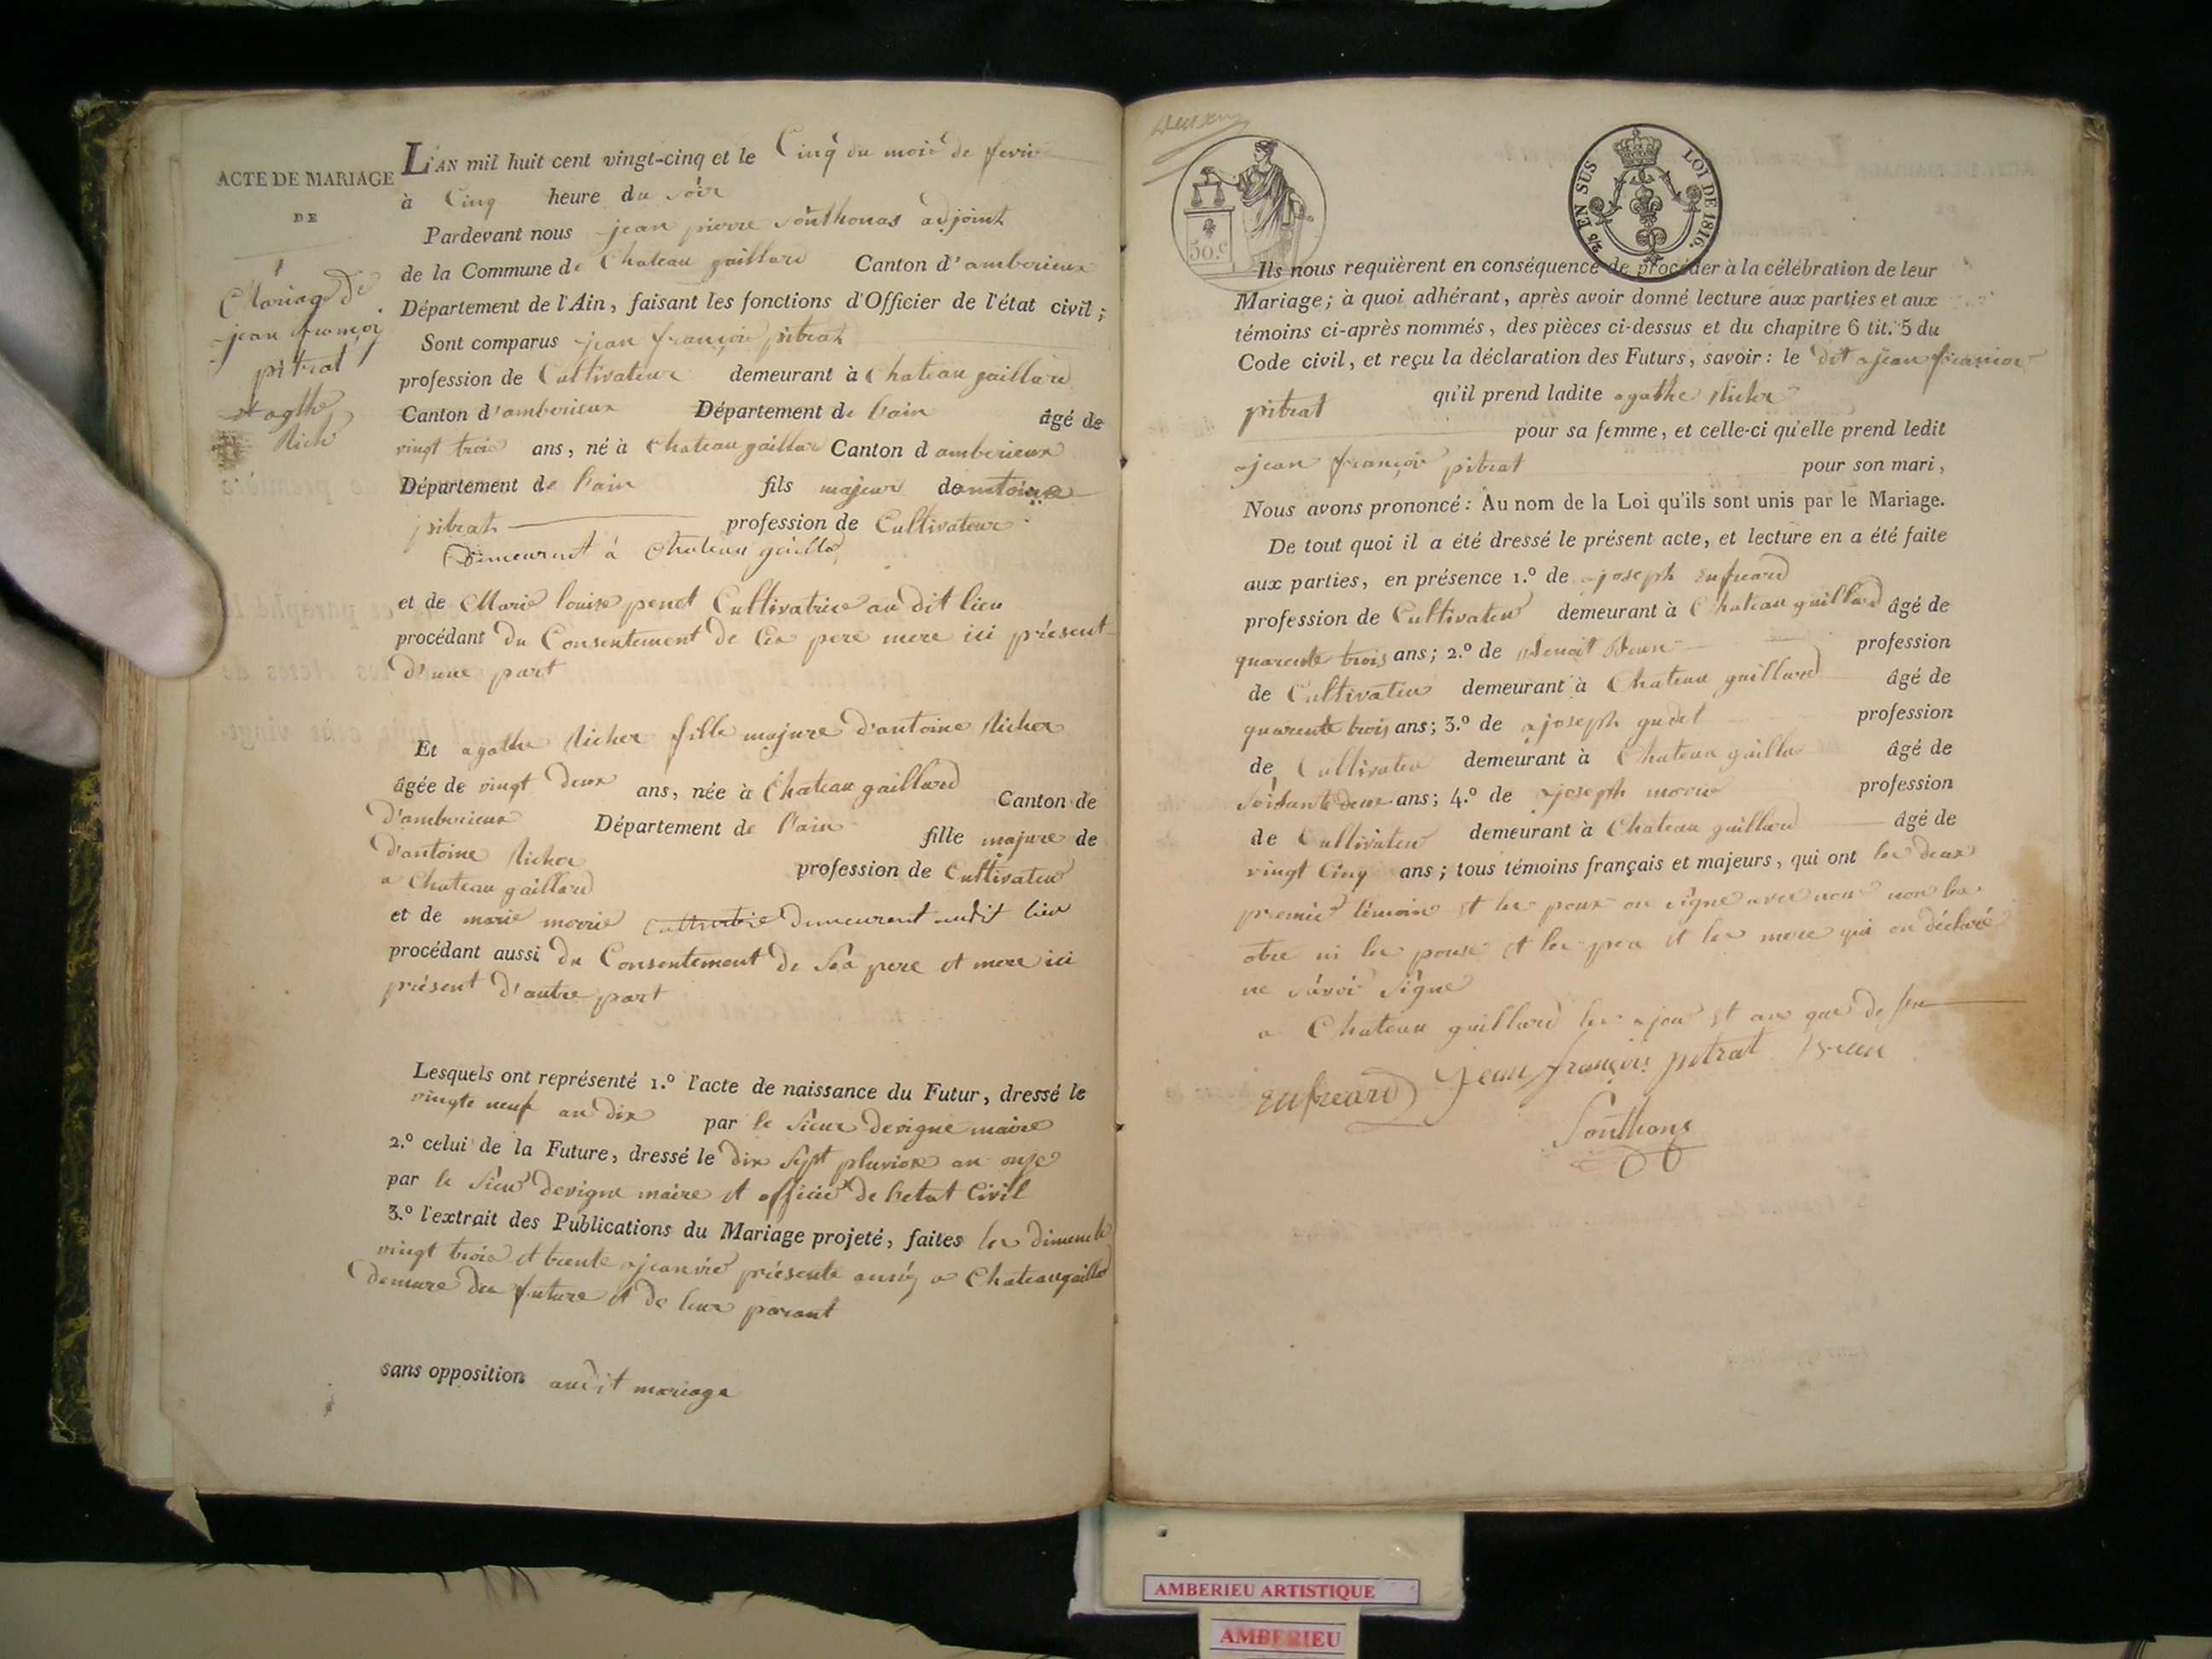 ACTE DE MARIAGE
DE
Mariage de
jean françoi
pitrat
et agthe
Riche
L'AN mil huit cent vingt-cinq et le Cinq du mois de fevrie
à Cinq heure du soir
Pardevant nous jean pierre Sonthonas adjoint
de la Commune de Chateau gaillard Canton d'amberieux
Département de l'Ain, faisant les fonctions d'Officier de l'état civil;
Sont comparus jean françois pitrat
profession de Cultivateur demeurant à Chateau gaillard
Canton d'amberieux Département de l'ain âgé de
vingt trois ans, né à Chateau gaillar Canton d amberieux
Département de l'ain fils majeur de antoine
pitrat profession de Cultivateur
Demeurant à Chateau gailla
et de Marie louise penet Cultivatrice au dit lieu
procédant du Consentement de Ces pere mere ici présent
d'une part
Et agathe Richer fille majure d'antoine Richer
âgée de vingt deux ans, née à Chateau gaillard Canton de
d'amberieux Département de l'ain fille majure de
d'antoine Richer profession de Cultivateur
a Chateau gaillard
et de marie moirie demeurant audit lieu
procédant aussi du Consentement de Sés pere et mere ici
présent d'autre part
Lesquels ont représenté 1.º l'acte de naissance du Futur, dressé le
vingte neuf an dix par le Sieur devigne maire
2.º celui de la Future, dressé le dix Sept pluviose an onze
par le Sieur devigne maire et officie de letat Civil
3.º l'extrait des Publications du Mariage projeté, faites les dimenche
vingt trois et trente ajeanvié présente année a Chateaugaillad
demure des future et de leur parant
sans opposition audit mariage
50.c
2/5 EN SUS LOI DE 1816.
Ils nous requièrent en conséquence de procéder à la célébration de leur
Mariage; à quoi adhérant, après avoir donné lecture aux parties et aux
témoins ci-après nommés, des pièces ci-dessus et du chapitre 6 tit. 5 du
Code civil, et reçu la déclaration des Futurs, savoir: le dit ajean françoi
pitrat qu'il prend ladite agathe Richer
pour sa femme, et celle-ci qu'elle prend ledit
ajean françois pitrat pour son mari,
Nous avons prononcé: Au nom de la Loi qu'ils sont unis par le Mariage.
De tout quoi il a été dressé le présent acte, et lecture en a été faite
aux parties, en présence 1.º de ajoseph Enfreard
profession de Cultivateu demeurant à Chateau gaillard âgé de
quarente trois ans; 2.º de Benoit Brun profession
de Cultivateu demeurant à Chateau gaillard âgé de
quarente trois ans; 3.º de ajoseph gudet profession
de Cultivateu demeurant à Chateau gailla âgé de
Soidante deux ans; 4.º de ajoseph profession
de Cultivateu demeurant à Chateau gaillard âgé de
vingt Cinq ans; tous témoins français et majeurs, qui ont les deux
premié témoins et les poux on signe avec nous non les
otre ni les pouse et les pere et les mere qui on déclaré
ne sávoi Signe
a Chateau gaillard les ajou et an que de seu
Enfreard Jean françois pitrat Brun
Sonthons
AMBERIEU ARTISTIQUE
AMBERIEU